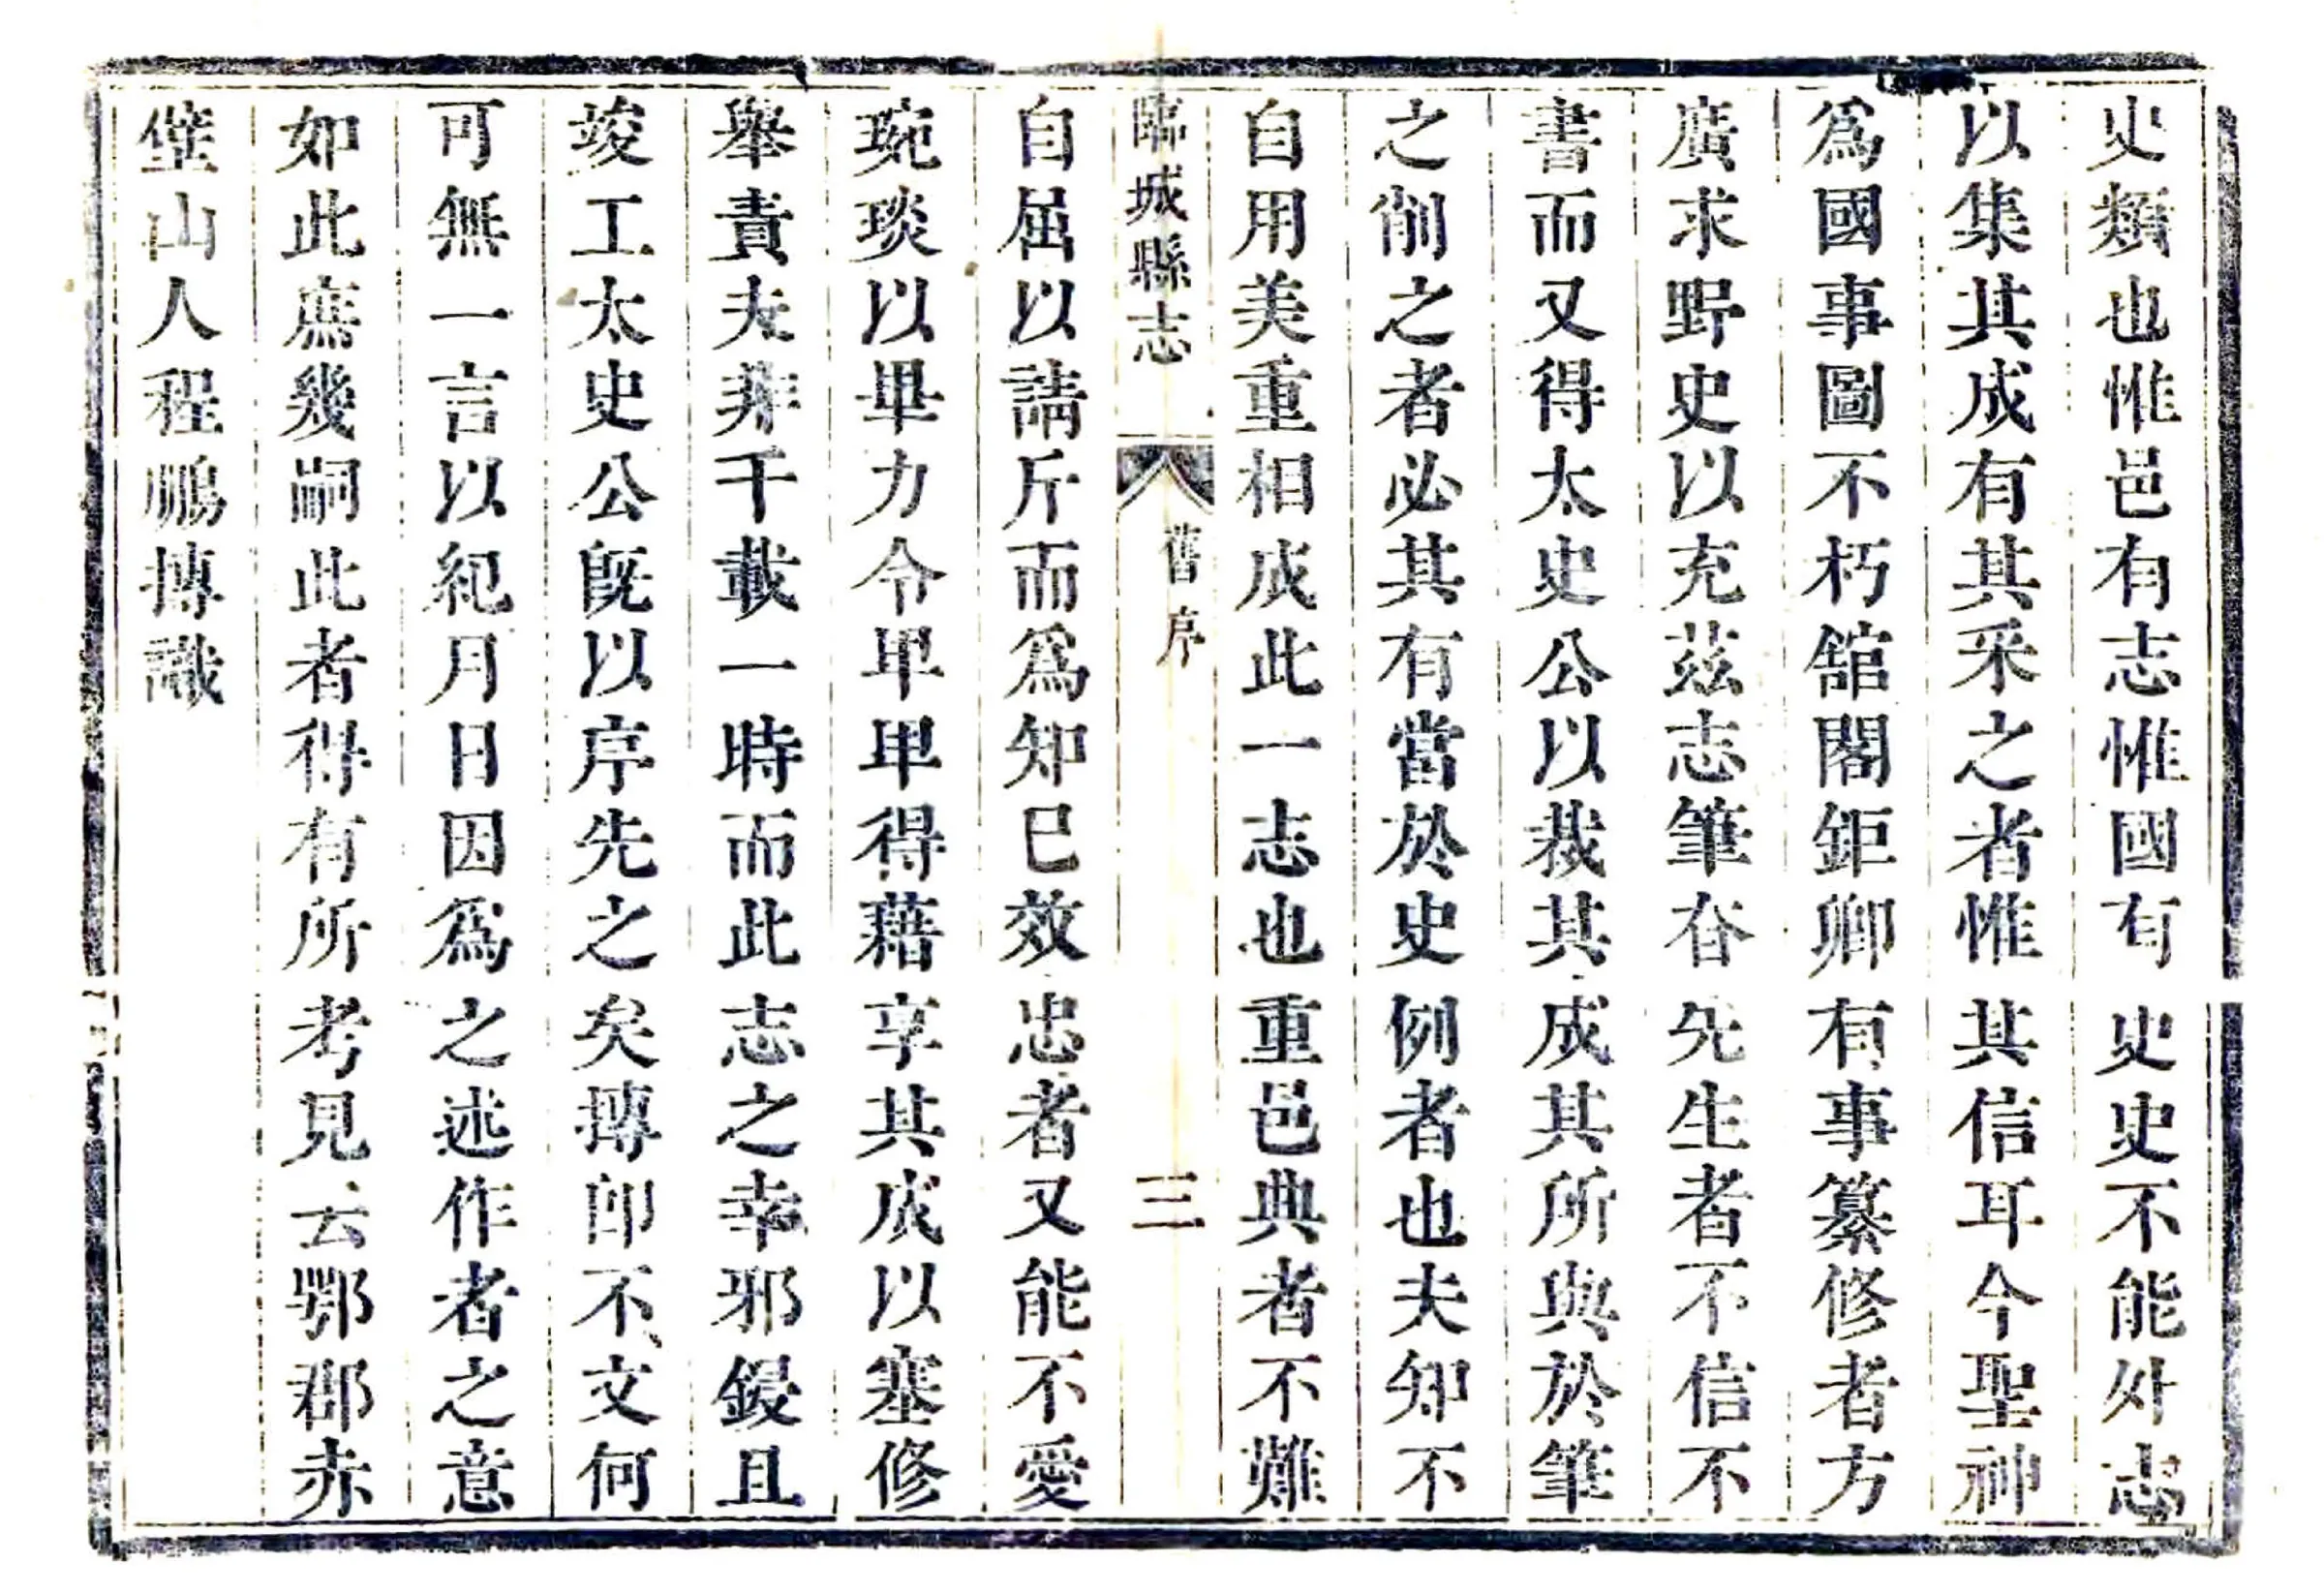 史類也惟邑有志惟國有史史不能外志
以集其成有其采之者惟其信耳今聖神
爲國事圖不朽舘閣鉅卿有事纂修者方
廣求野史以充茲志筆奋先生者不信不
書而又得太史公以裁其成其所與於筆
之削之者必其有當於史例者也夫知不
自用美重相成此一志也重邑典者不難
臨城縣志
舊序
三
自屈以請斤而爲知已效忠者又能不愛
琬琰以畢力令畢畢得藉享其成以塞修
舉責夫非千載一時而此志之幸邪鋟且
竣工太史公旣以序先之矣摶卽不文何
可無一言以紀月日因爲之述作者之意
如此庶幾嗣此者得有所考見云鄂郡赤
壁山人程鵬摶識